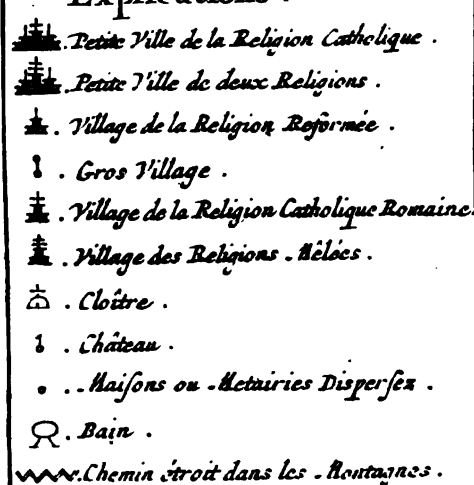 Explications .
. Petite Ville de la Religion Catholique .
. Petite Ville de deux Religions .
. Village de la Religion Reformée .
. Gros Village .
. Village de la Religion Catholique Romaine.
. Village des Religions Mêlées .
. Cloître .
. Château .
. Maiſons ou Metairies Disperſez .
. Bain .
. Chemin étroit dans les Montagnes .